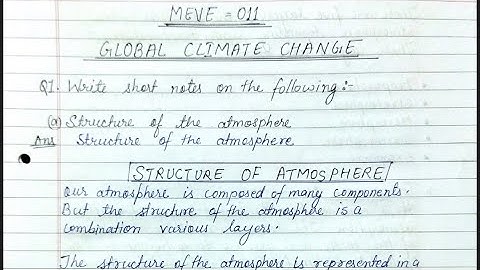 MEVE = 011
GLOBAL CLIMATE CHANGE
Q1. Write short notes on the following:-
(a) Structure of the atmosphere
Ans Structure of the atmosphere
STRUCTURE OF ATMOSPHERE
Our atmosphere is composed of many components.
But the structure of the atmosphere is a
combination various layers.
The structure of the atmosphere is represented in a